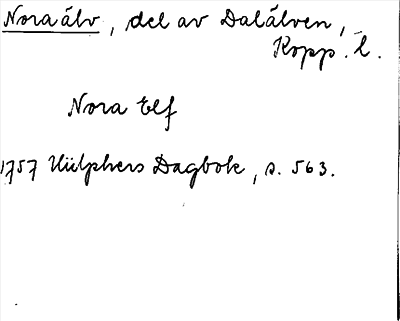 Nora älv, del av Dalälven,
Kopp. l.
Nora Elf
1757 Hülphers Dagbok, s. 563.